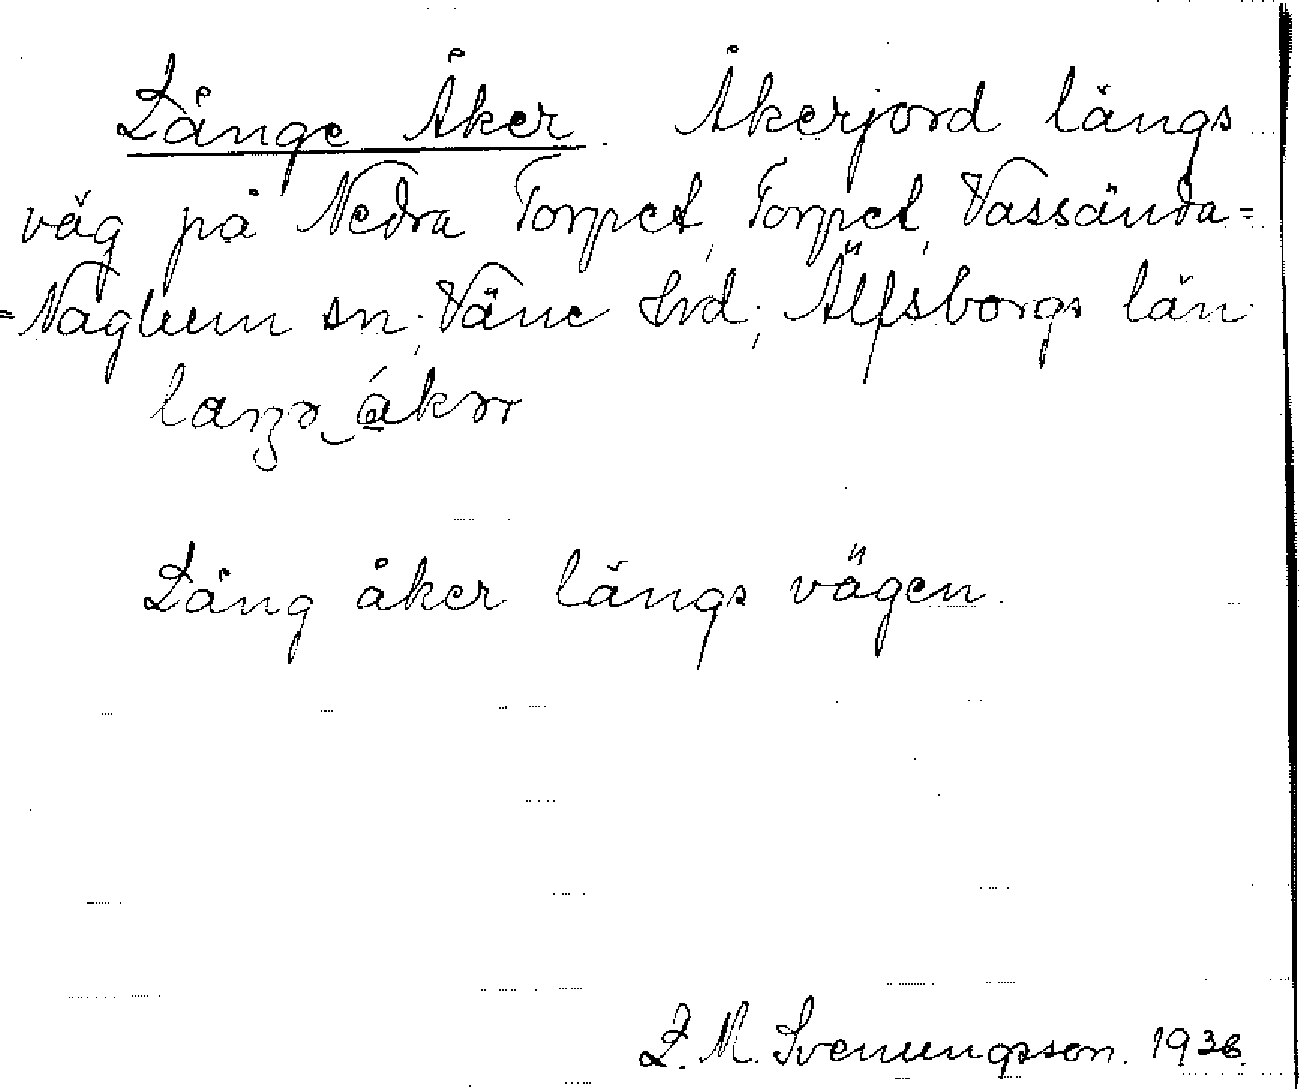 Långe Åker. Åkerjord längs
väg på Nedra Torpet, Torpet, Vassända=
=Naglum sn; Väne hd; Älfsborgs län.
Lång åker längs vägen.
L. M. Svenungsson. 1936.